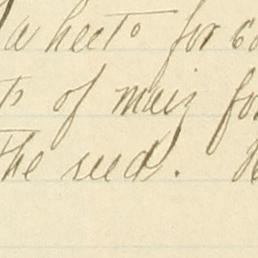 a hecto for 60
ts of maiz for
The seed.